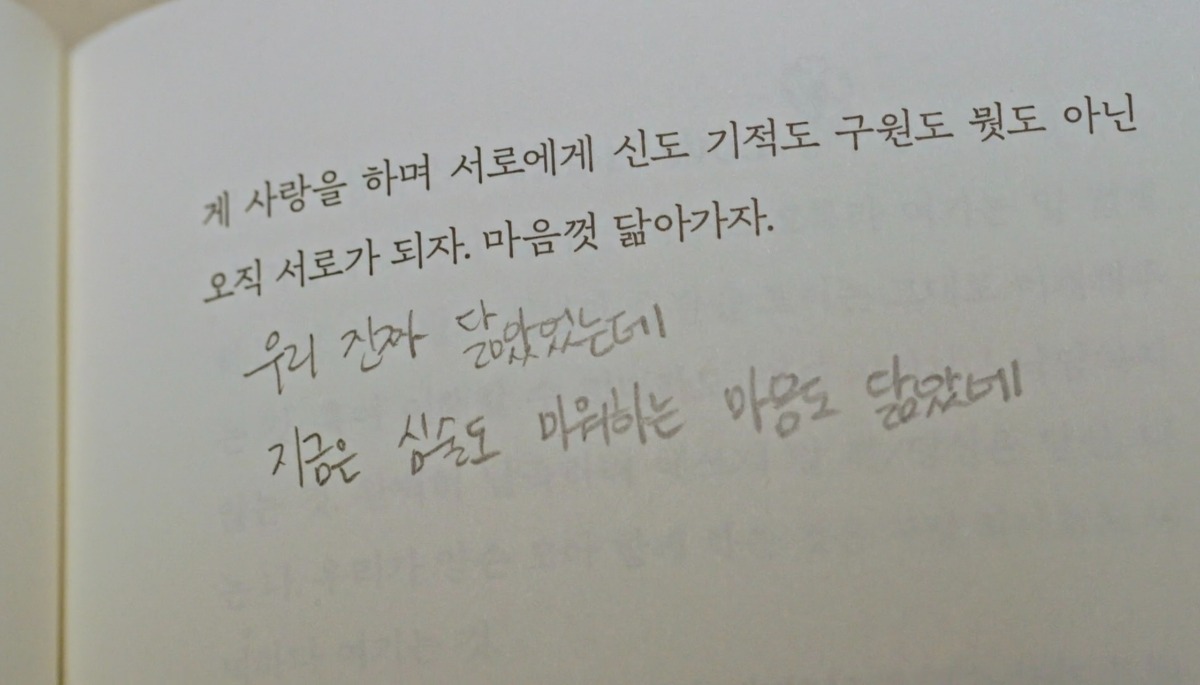 게 사랑을 하며 서로에게 신도 기적도 구원도 뭣도 아닌
오직 서로가 되자. 마음껏 닮아가자.
우리 진짜 닮았었는데
지금은 심술도 미워하는 마음도 닮았네